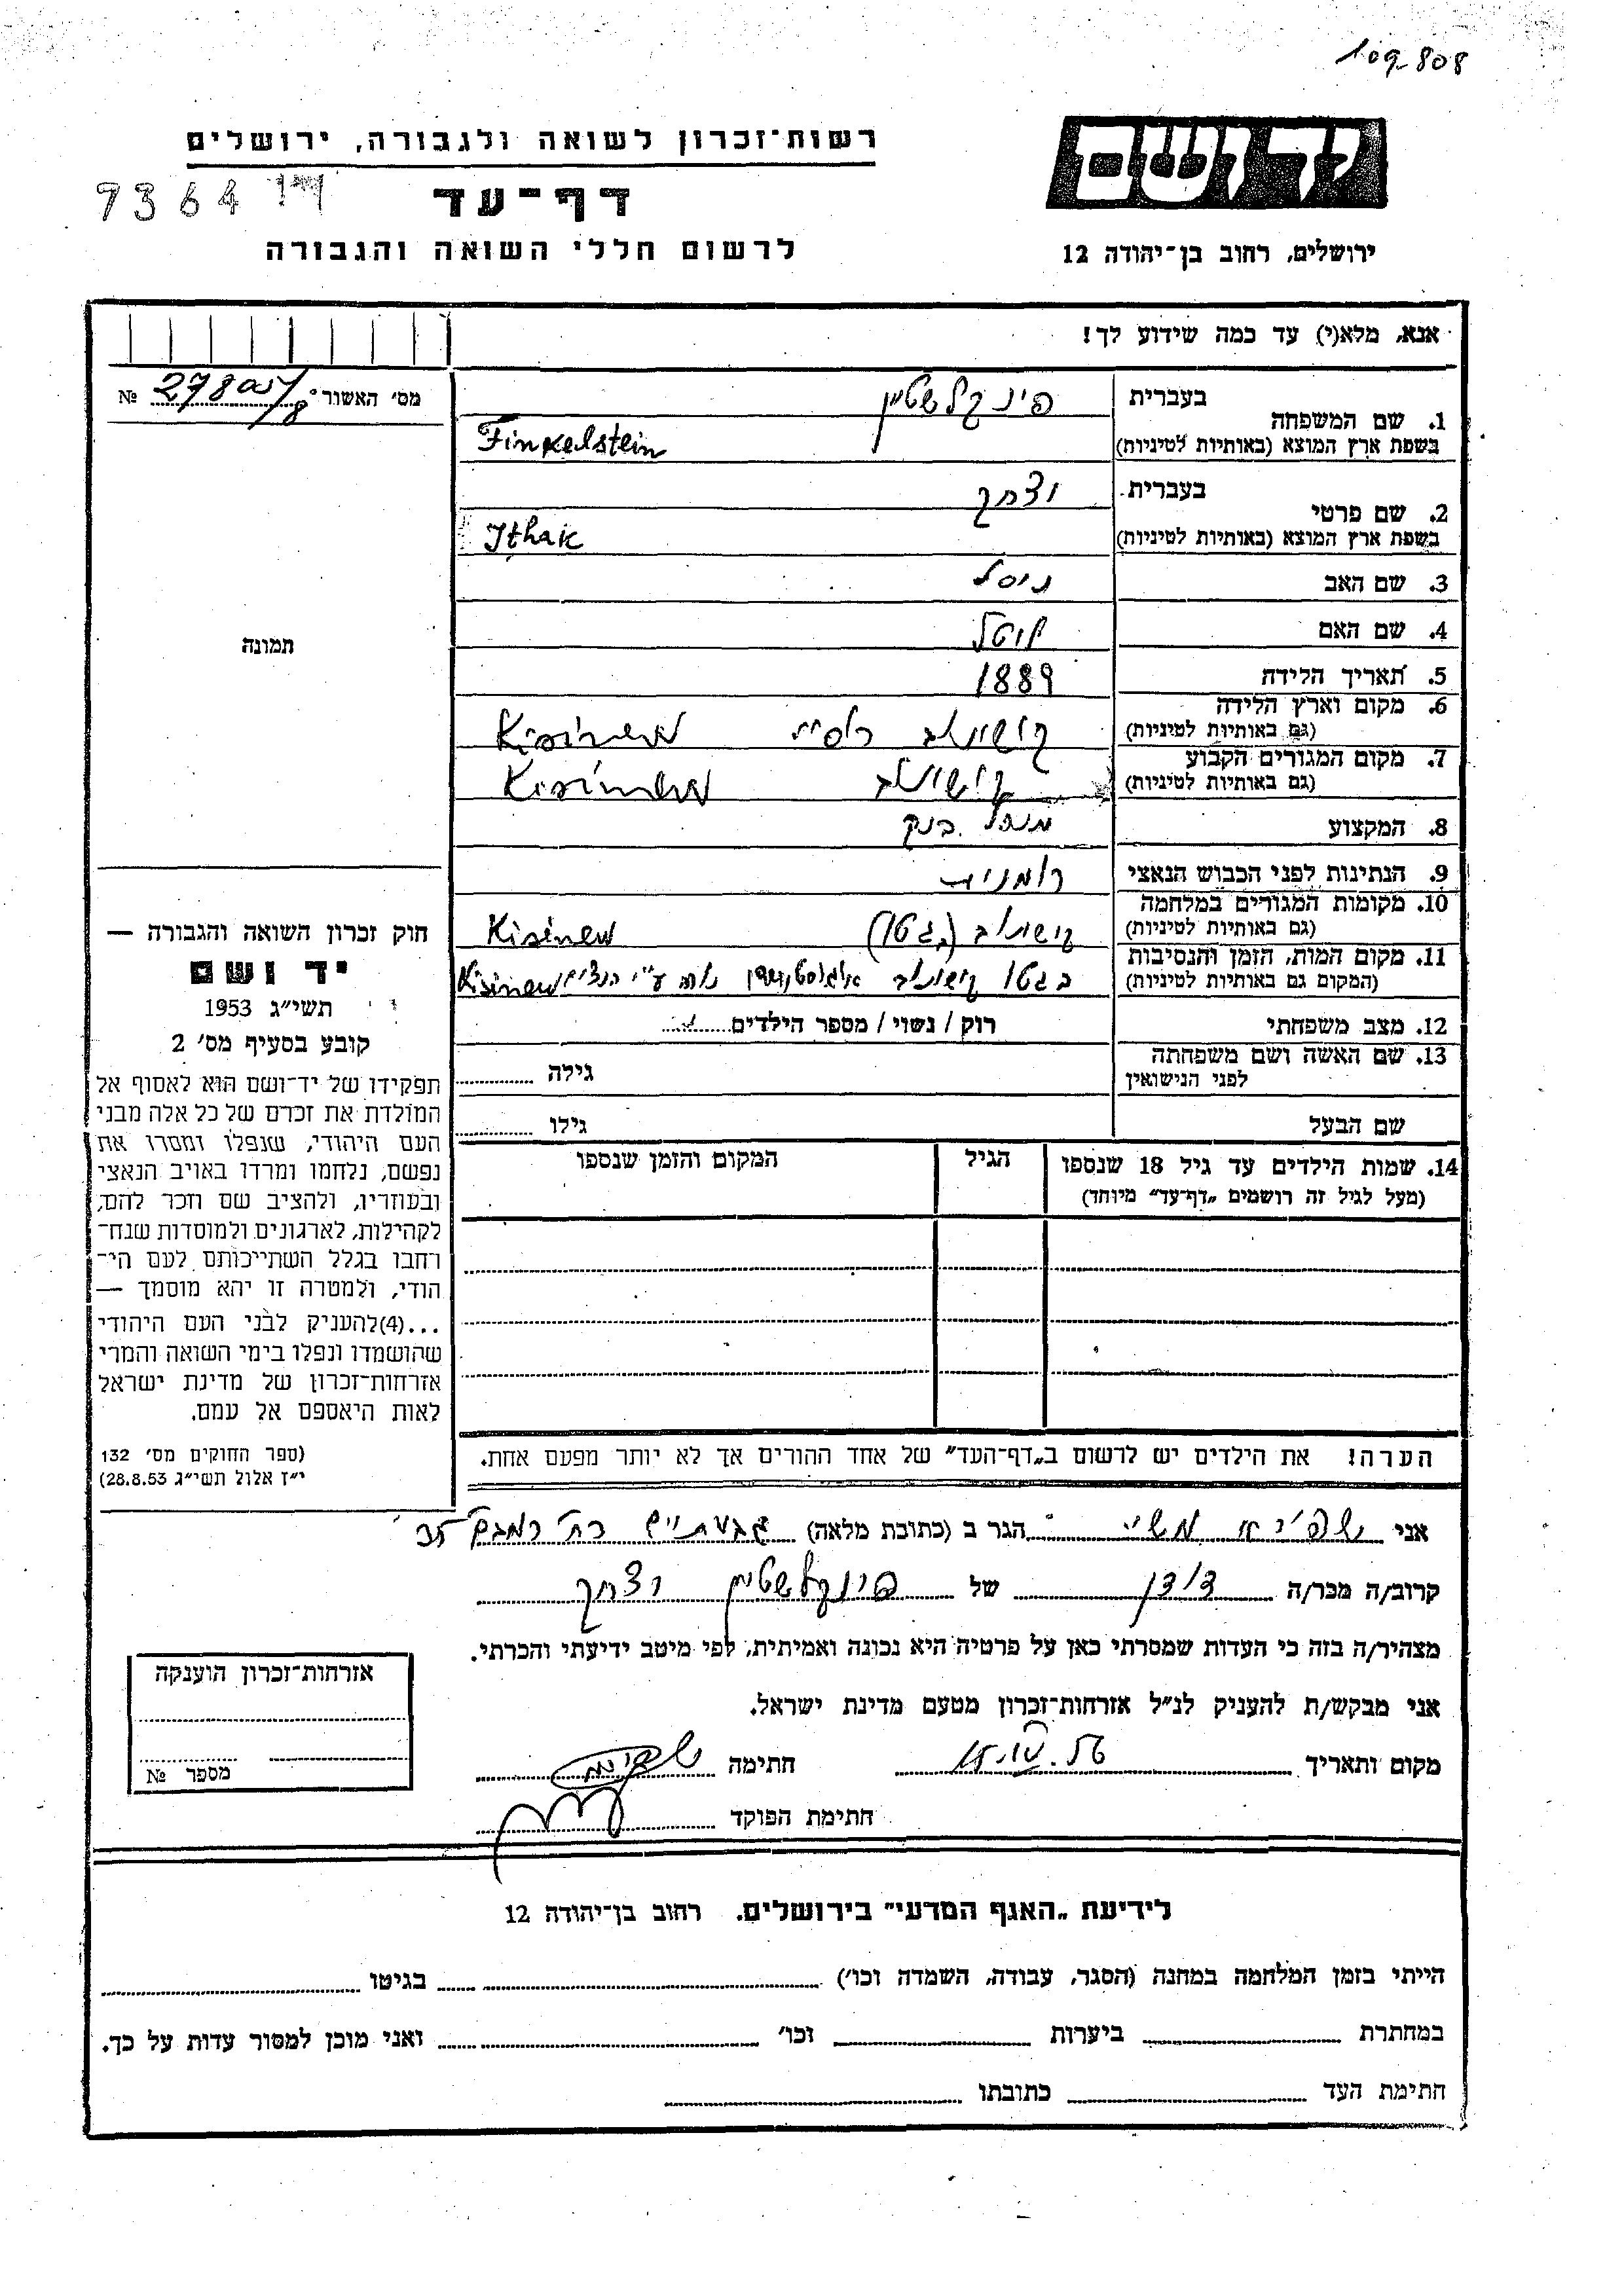 109-808
רשות־זכרון לשואה ולגבורה, ירושלים
יד ושם
7364
דף־עד
לרשום חללי השואה והגבורה
ירושלים, רחוב בן־יהודה 12
אנא, מלא(י) עד כמה שידוע לך!
מס׳ האשור №
1. שם המשפחה בעברית פינקלשטיין
בשפת ארץ המוצא (באותיות לטיניות) Finkelstein
2. שם פרטי בעברית יצחק
בשפת ארץ המוצא (באותיות לטיניות) Ithak
3. שם האב ניסל
4. שם האם
5. תאריך הלידה 1889
6. מקום וארץ הלידה (גם באותיות לטיניות) קישינוב רוסיי Kisinew
7. מקום המגורים הקבוע (גם באותיות לטיניות) קישינוב Kisinew
8. המקצוע מנהל בנק
9. הנתינות לפני הכבוש הנאצי רומנית
10. מקומות המגורים במלחמה (גם באותיות לטיניות) קישינוב (בגטו) Kisinew
11. מקום המות, הזמן והנסיבות (המקום גם באותיות לטיניות) בגטו קישינוב ע״י הנצים Kisinew
12. מצב משפחתי רוק / נשוי / מספר הילדים
13. שם האשה ושם משפחתה לפני הנישואין גילה
שם הבעל גילו
14. שמות הילדים עד גיל 18 שנספו הגיל המקום והזמן שנספו
(מעל לגיל זה רושמים „דף־עד״ מיוחד)
הערה! את הילדים יש לרשום ב„דף־העד״ של אחד ההורים אך לא יותר מפעם אחת.
תמונה
חוק זכרון השואה והגבורה —
יד ושם
תשי״ג 1953
קובע בסעיף מס׳ 2
תפקידו של יד־ושם הוא לאסוף אל
המולדת את זכרם של כל אלה מבני
העם היהודי, שנפלו ומסרו את
נפשם, נלחמו ומרדו באויב הנאצי
ובעוזריו, ולהציב שם וזכר להם,
לקהילות, לארגונים ולמוסדות שנח־
רחבו בגלל השתייכותם לעם הי־
הודי, ולמטרה זו יהא מוסמך —
...(4) להעניק לבני העם היהודי
שהושמדו ונפלו בימי השואה והמרי
אזרחות־זכרון של מדינת ישראל
לאות היאספם אל עמם.
(ספר החוקים מס׳ 132
י״ז אלול תשי״ג 28.8.53)
אני הגר ב (כתובת מלאה) גבעתיים רח׳ רמבם 35
קרוב/ה מכר/ה דודן של פינקלשטיין יצחק
מצהיר/ה בזה כי העדות שמסרתי כאן על פרטיה היא נכונה ואמיתית, לפי מיטב ידיעתי והכרתי.
אני מבקש/ת להעניק לנ״ל אזרחות־זכרון מטעם מדינת ישראל.
מקום ותאריך חתימה
חתימת הפוקד
אזרחות־זכרון הוענקה
מספר №
לידיעת „האגף המדעי״ בירושלים. רחוב בן־יהודה 12
הייתי בזמן המלחמה במחנה (הסגר, עבודה, השמדה וכו׳) בגיטו
במחתרת ביערות וכו׳ ואני מוכן למסור עדות על כך.
חתימת העד כתובתו